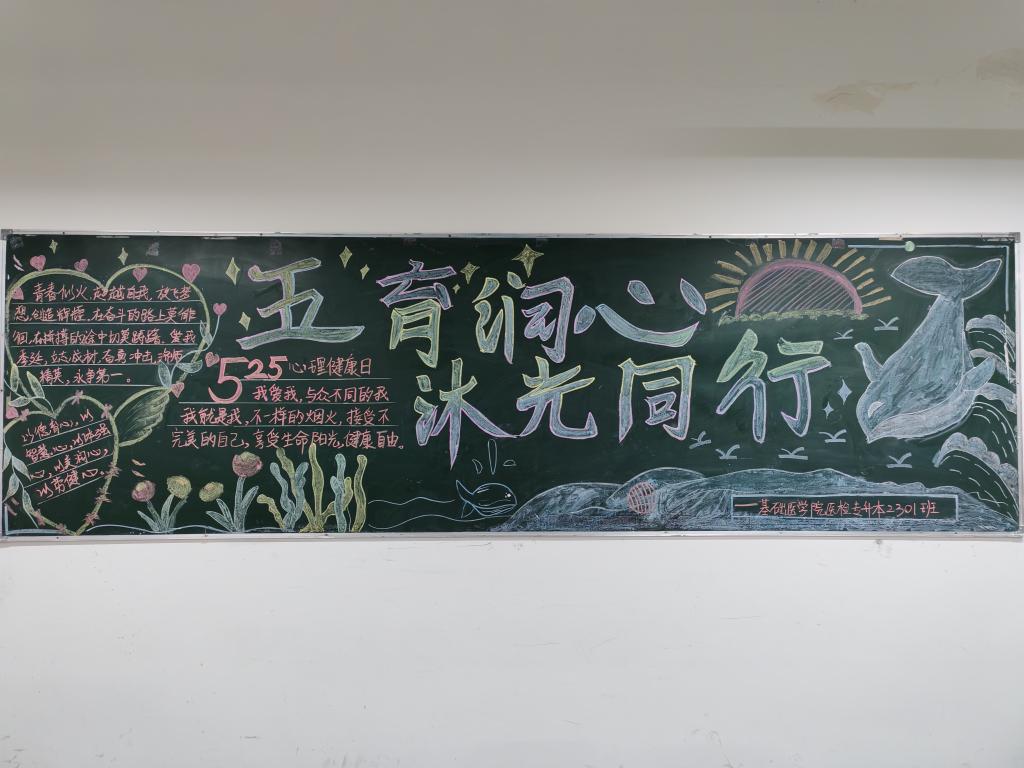 青春似火，超越自我，放飞梦
想，创造辉煌，在奋斗的路上莫徘
徊，在拼搏的途中切莫踌躇。
精英，永争第一。
以德育心，以
智慧心，以体强
心，以美润心，
以劳健心。
五育润心
沐光同行
525心理健康日
我爱我，与众不同的我
我就是我，不一样的烟火，接受不
完美的自己，享受生命阳光，健康自由。
一基础医学院医检专升本2301班